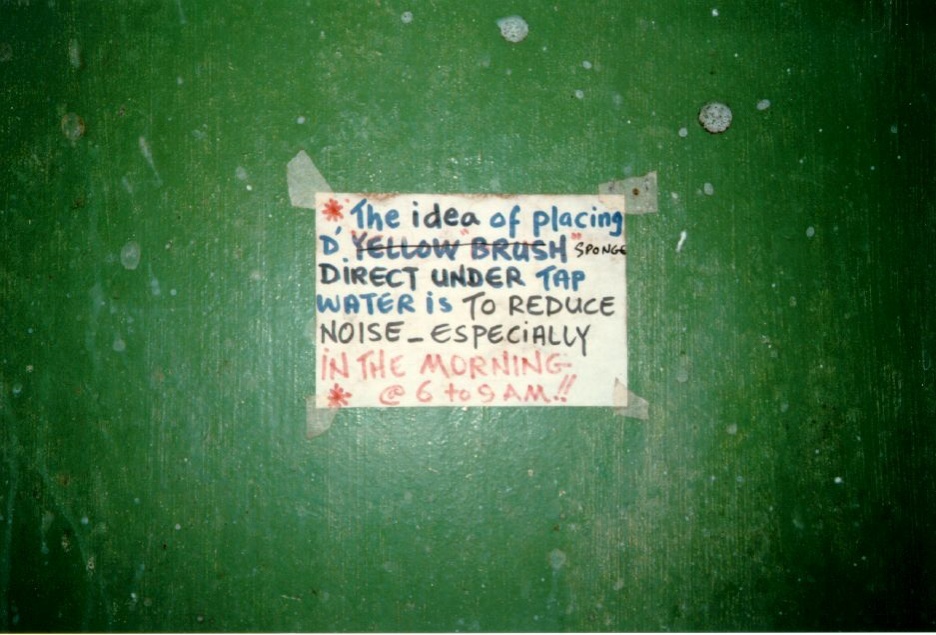 * The idea of placing
D' "YELLOW" BRUSH" SPONGE
DIRECT UNDER TAP
WATER iS TO REDUCE
NOISE - ESPECiALLY
iN THE MORNING
* @ 6 to 9 AM.!!